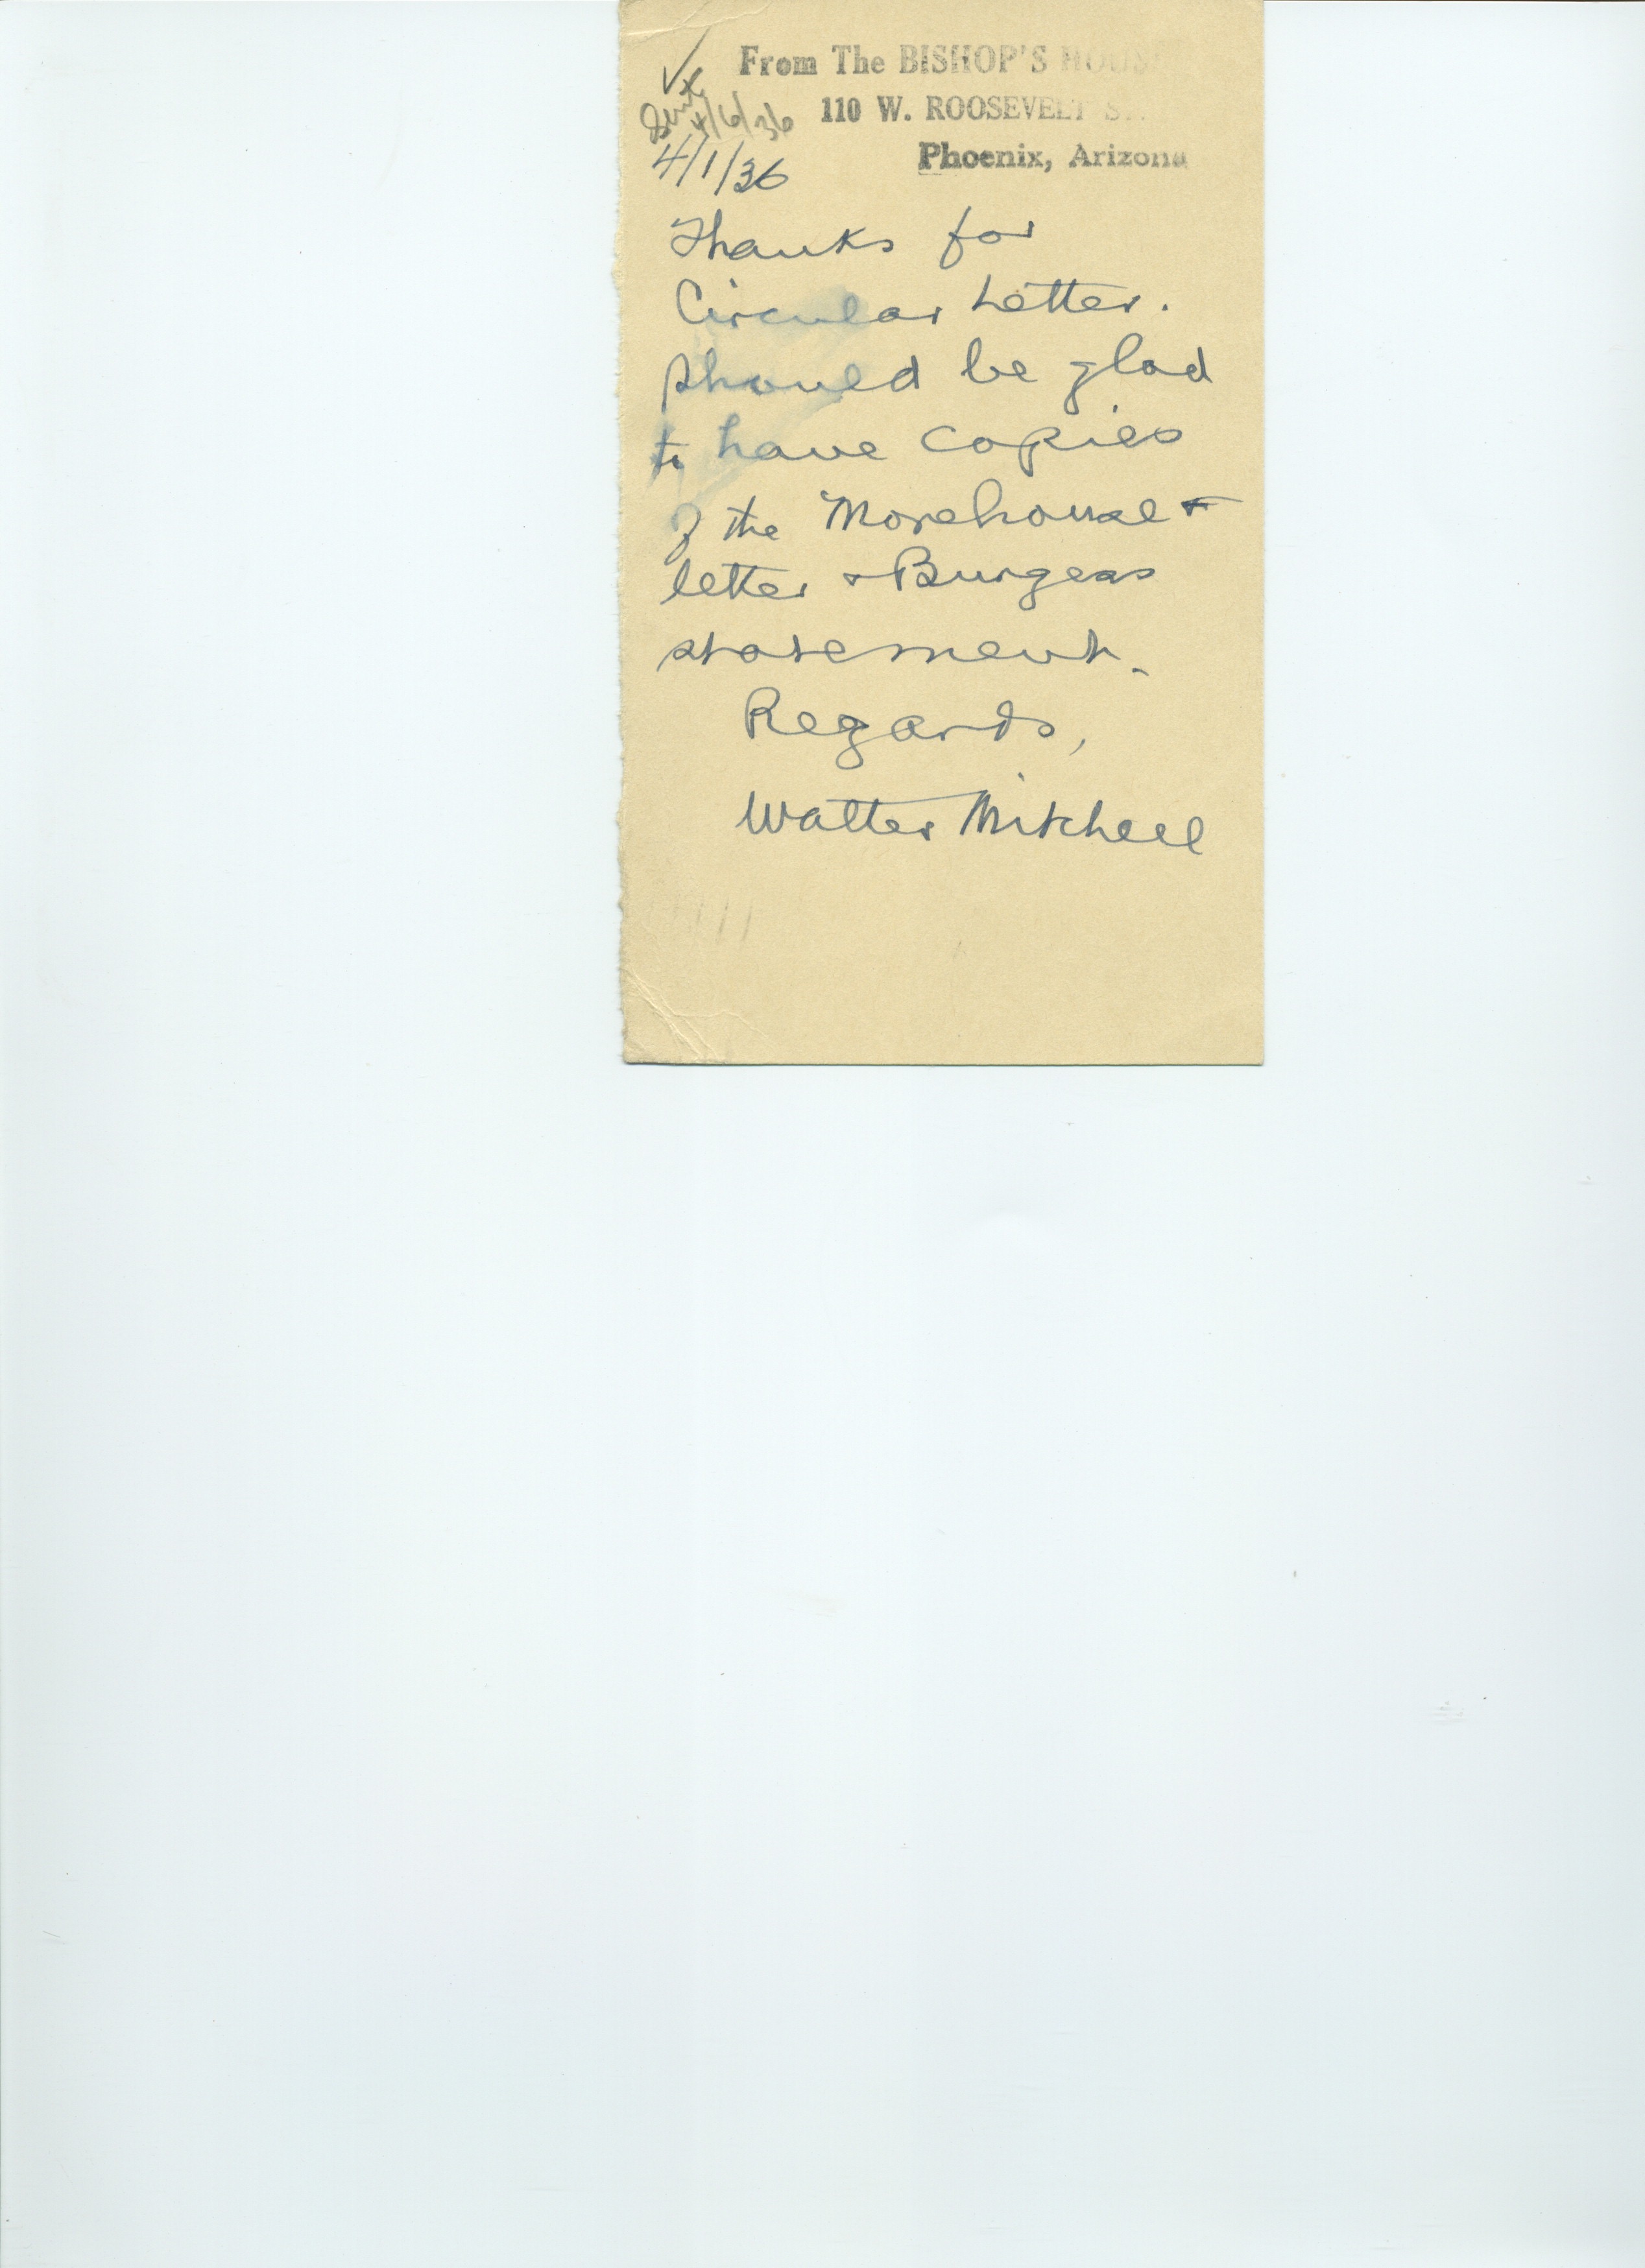 ✓ From The BISHOP'S HOUS
Sent 4/6/36
110 W. ROOSEVELT S
4/1/36
Phoenix, Arizona
Thanks for
Circular Letter.
Should be glad
to have copies
of the Morehouse &
letter & Burgess
statement.
Regards,
Walter Mitchell